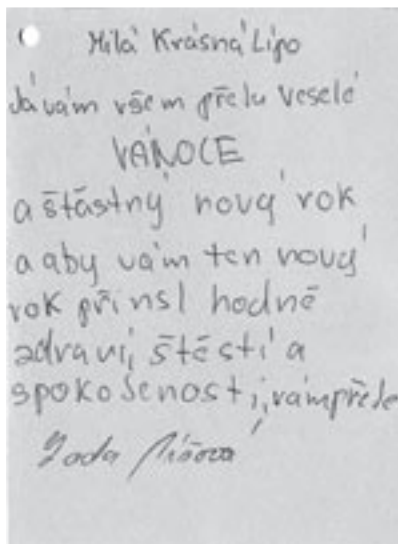 Milá Krásná Lípo
Já vám všem přeju veselé
VÁNOCE
a šťastný nový rok
a aby vám ten nový
rok přinsl hodně
zdraví, štěstí a
spokojenosti, vám přeje